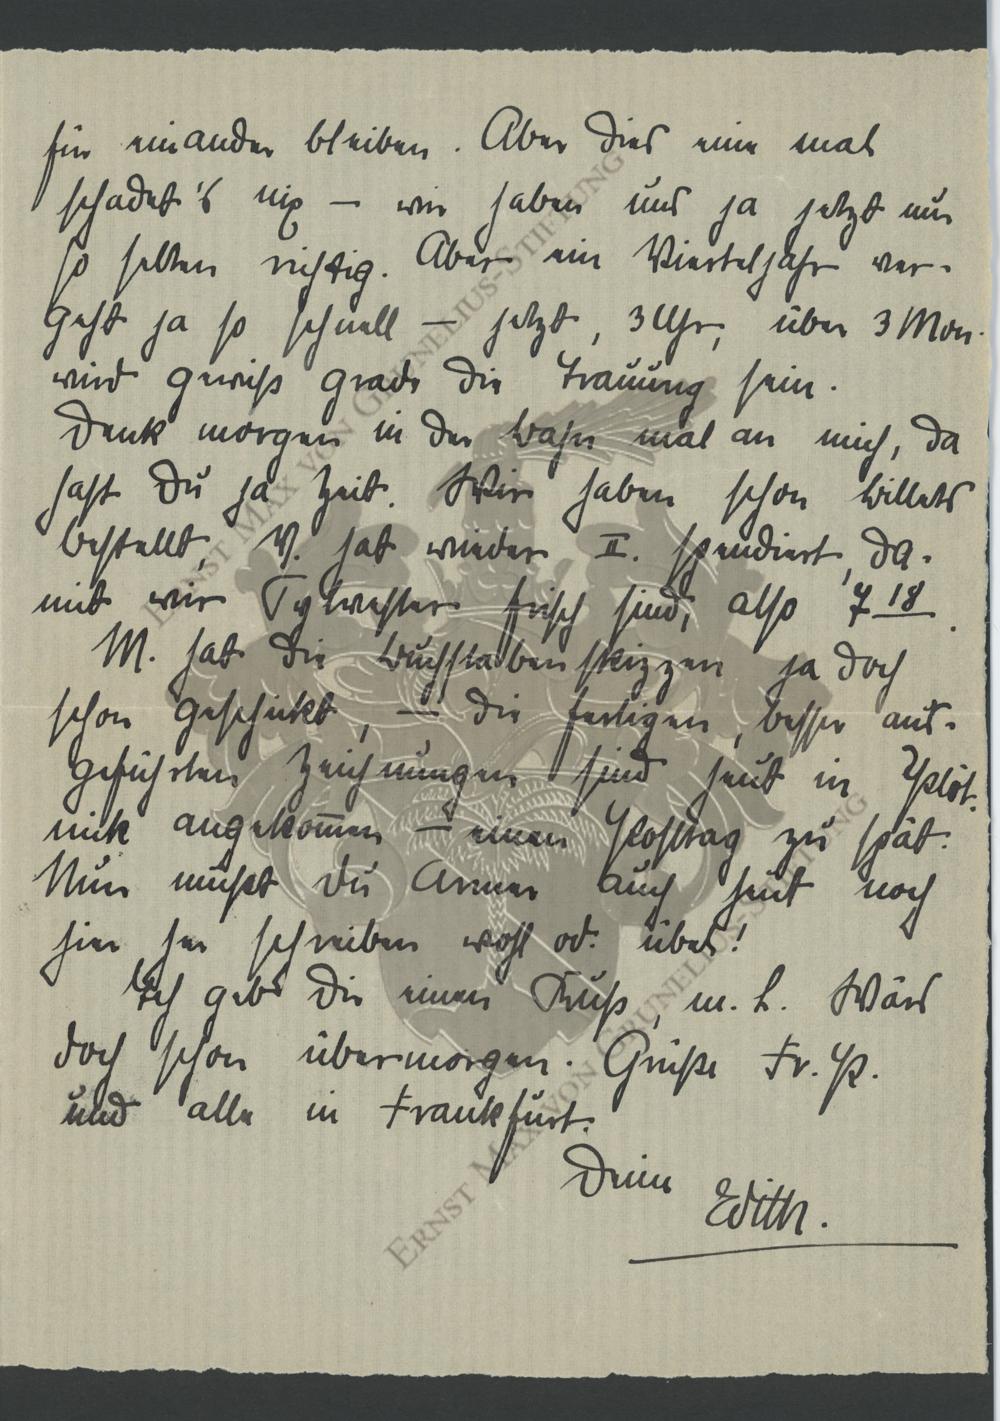 für einander bleiben. Aber dies eine mal
schadet's nix – wir haben uns ja jetzt nur
so selten richtig. Aber ein Vierteljahr ver-
geht ja so schnell – jetzt, 3 Uhr, über 3 Mon.
wird gewiß grade die Trauung sein.
Denk morgen in der Bahn mal an mich, da
hast Du ja Zeit. Wir haben schon Billets
bestellt, V. hat wieder II. spendiert, da-
mit wir Sylvester frisch sind, also 7 18.
M. hat die Buchstabenskizzen ja doch
schon geschickt, – die fertigen, besser aus-
geführten Zeichnungen sind heut in
angekom̅en – einen Posttag zu spät.
Nun mußt du Armer auch heut noch
hier her schreiben wohl od. übel!
Ich geb Dir einen Kuß, m. L. Wärs
doch schon übermorgen. Grüße Fr. P.
und alle in Frankfurt.
Deine Edith.
ERNST MAX VON GRUNELIUS-STIFTUNG
ERNST MAX VON GRUNELIUS-STIFTUNG